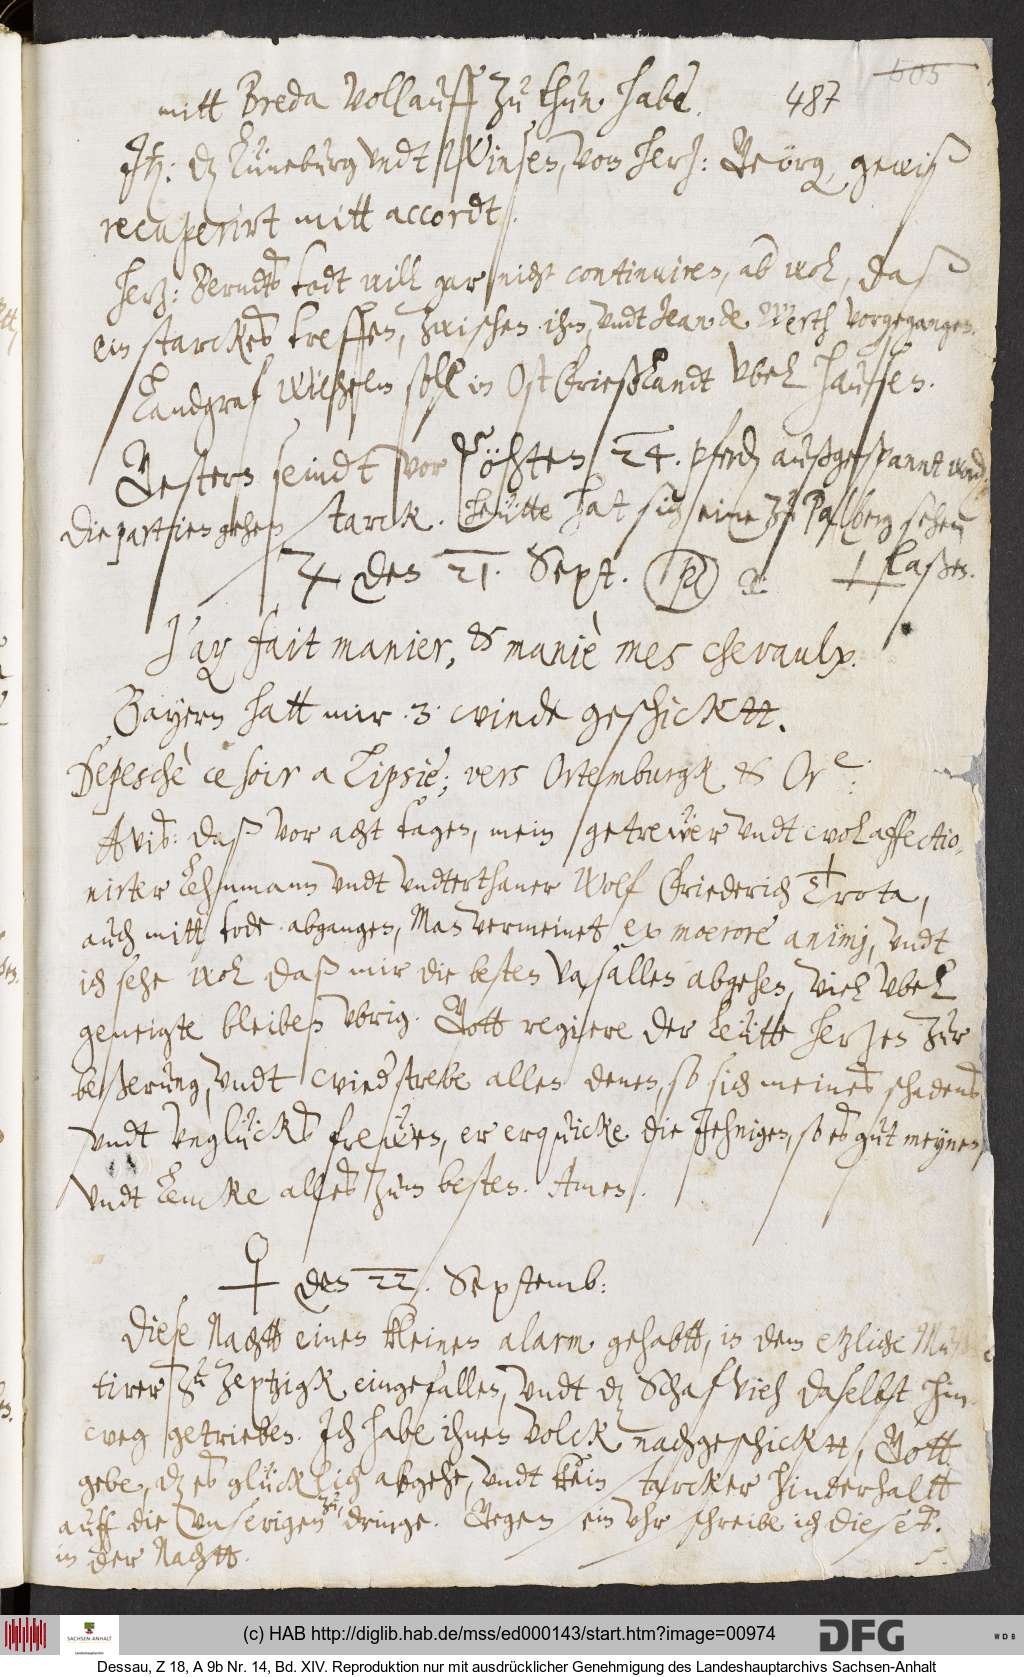 605
mitt Breda vollauff zu thun habe.   487
Jt: dz Lüneburg vndt Winsen, von Hertz: Geörg, gewiß
recuperirt mitt accordt.
Hertz: Berndts todt will gar nicht continuiren, ob wol, daß
ein starckes treffen, zwischen ihm, vndt Jean de Werth vorgegangen.
Landgraf Wilhelm soll in OstFrießlandt vbel hausen.
Gestern seindt vor Cöhten 24. pferde außgespannt word
die partien gehen starck. Heütte hat sich eine zu Palberg sehen
laßen.
♃ den 21. Sept.
J'ay fait manier, & maniè mes chevaulx.
Bayern hatt mir .3. winde geschicktt.
Depeschè ce soir a Lipsie; vers Ortemburgk & Or e:
Avis: daß vor acht tagen, mein getrewer vndt wolaffectio-
nirter Lehnmann vndt vndterthaner Wolf Friederich Trota,
auch mitt tode abgangen, Man vermeinet ex moerore animj, vndt
ich sehe wol daß mir die besten vasallen abgehen, viel vbel
geneigte bleiben vbrig. Gott regiere der leütte hertzen zur
beßerung, vndt wiederstrebe allen denen, so sich meines schadens
vndt vnglücks frewen, er erquicke die jehnigen, so es gut meynen,
vndt lencke alles zum besten. Amen.
♀ den 22. Septemb:
Diese Nachtt einen kleinen alarm gehabtt, in dem etzliche Muß¬
tirer zu Zeptzigk eingefallen, vndt dz Schafvieh daselbst hin-
weg getrieben. Jch habe ihnen volck nachgeschicktt, Gott
gebe, dz es glücklich abgehe, vndt kein starcker hinderhaltt
auff die vnserigen zu dringe. Gegen ein vhr schreibe ich dieses.
in der Nachtt.
(c) HAB http://diglib.hab.de/mss/ed000143/start.htm?image=00974
SACHSEN-ANHALT
Landeshauptarchiv
DFG
WDB
Dessau, Z 18, A 9b Nr. 14, Bd. XIV. Reproduktion nur mit ausdrücklicher Genehmigung des Landeshauptarchivs Sachsen-Anhalt